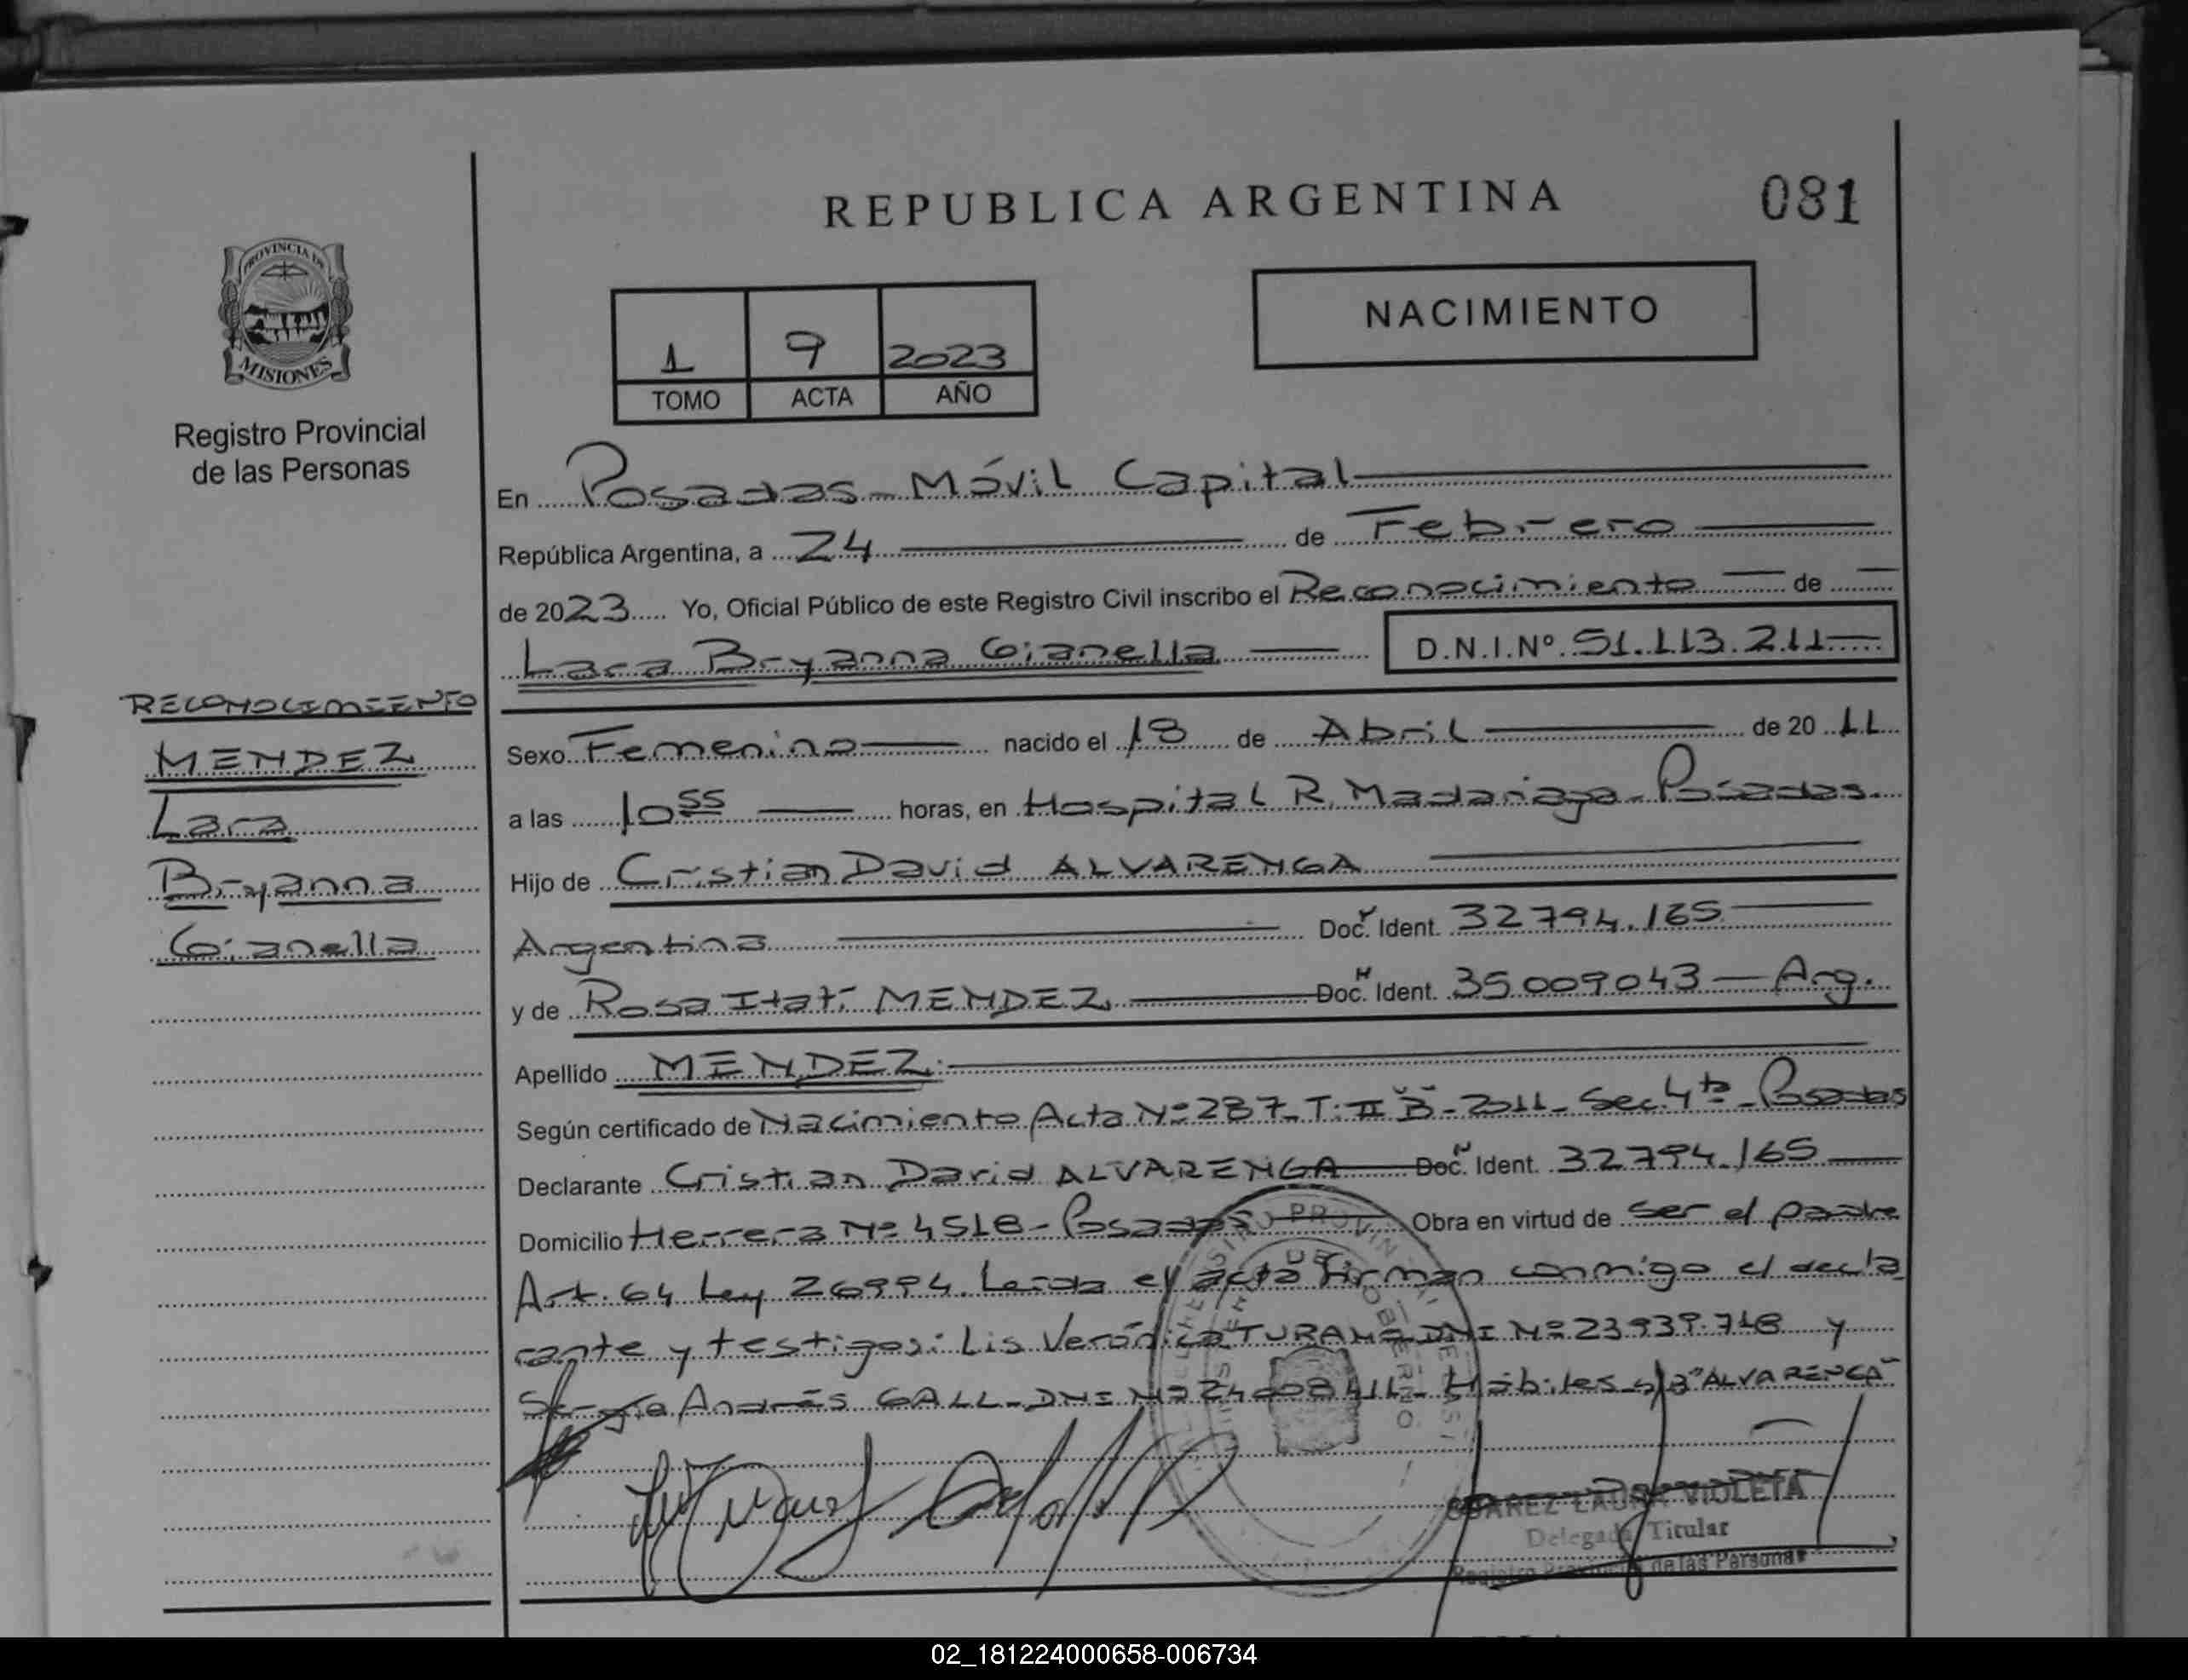 REPUBLICA ARGENTINA
081
PROVINCIA DE
MISIONES
Registro Provincial
de las Personas
1 9 2023
TOMO ACTA AÑO
NACIMIENTO
En Posadas - Móvil Capital
República Argentina, a 24 de Febrero
de 2023 Yo, Oficial Público de este Registro Civil inscribo el Reconocimiento de
Lara Bryanna Gianella D.N.I.Nº 51.113.211
RECONOCIMIENTO
MENDEZ
Lara
Bryanna
Gianella
Sexo Femenino nacido el 18 de Abril de 2011
a las 10 55 horas, en Hospital R. Madariaga - Posadas.
Hijo de Cristian David ALVARENGA
Argentina Doc. Ident. 32794.165
y de Rosa Itatí MENDEZ Doc. Ident. 35009043 - Arg.
Apellido MENDEZ
Según certificado de Nacimiento Acta Nº 287 - T: II B - 2011 - Sec. 4ta - Posadas
Declarante Cristian David ALVARENGA Doc. Ident. 32794.165
Domicilio Herrera Nº 4518 - Posadas Obra en virtud de ser el padre
Art. 64 Ley 26994. Leída el acta firman conmigo el decla
rante y testigos: Lis Verónica DNI Nº 23939.718 y
Sergio Andrés GALL - DNI Nº 24008411 - Hábiles s/b "ALVARENGA"
SUAREZ LAURA VIOLETA
Delegada Titular
Registro Provincial de las Personas
02_181224000658-006734